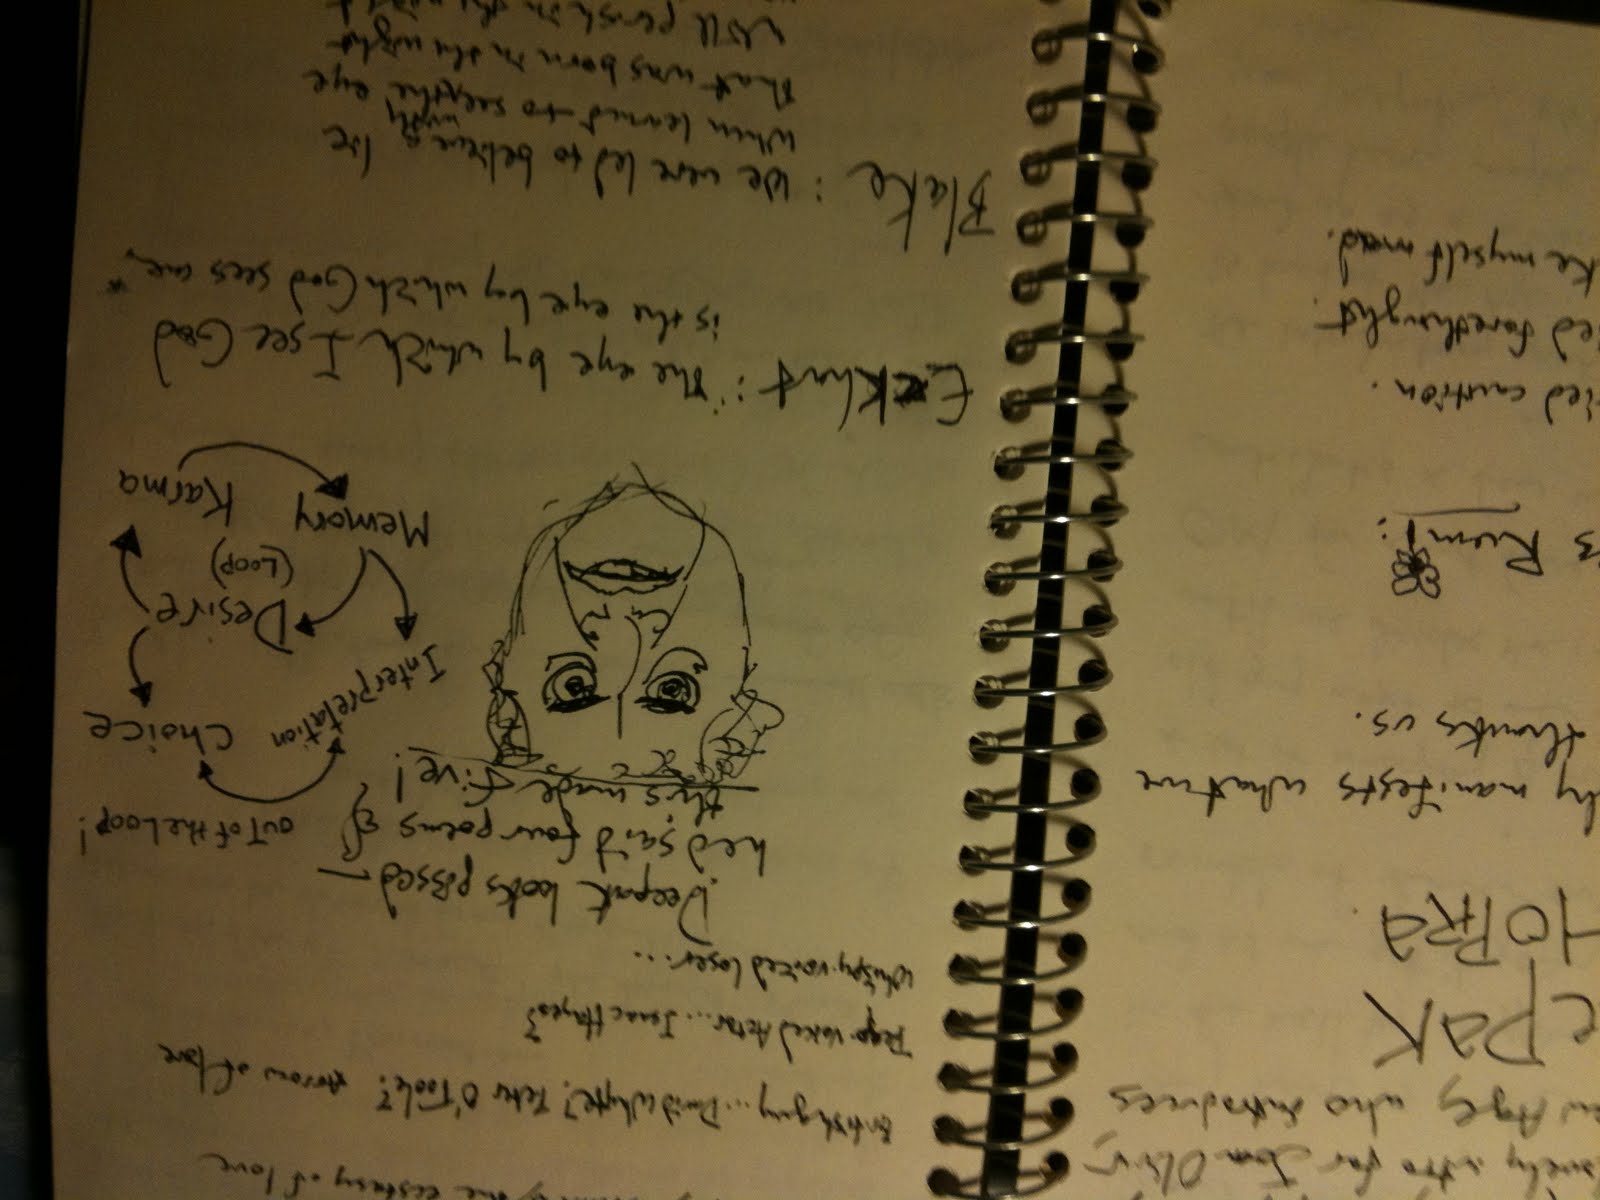 intro for
Age, who introduces
ePAK
HOPRA
manifests what we
thinks us.
Rumi:
caution.
forethought.
myself mad.
ecstasy of love
British guy... David Whyte? Peter O'Toole? Arrow of love
voiced Actor... Isaac Hayes?
Whispy-voiced loser...
Deepak looks pissed—
he'd said four poems &
this made five!
out of the Loop!
Interpretation
Choice
Desire
(Loop)
Memory
Karma
Eckhart: "The eye by which I see God
is the eye by which God sees me."
Blake: We were led to believe a lie
when learned to see with the eye
that was born in the night
will perish in the night